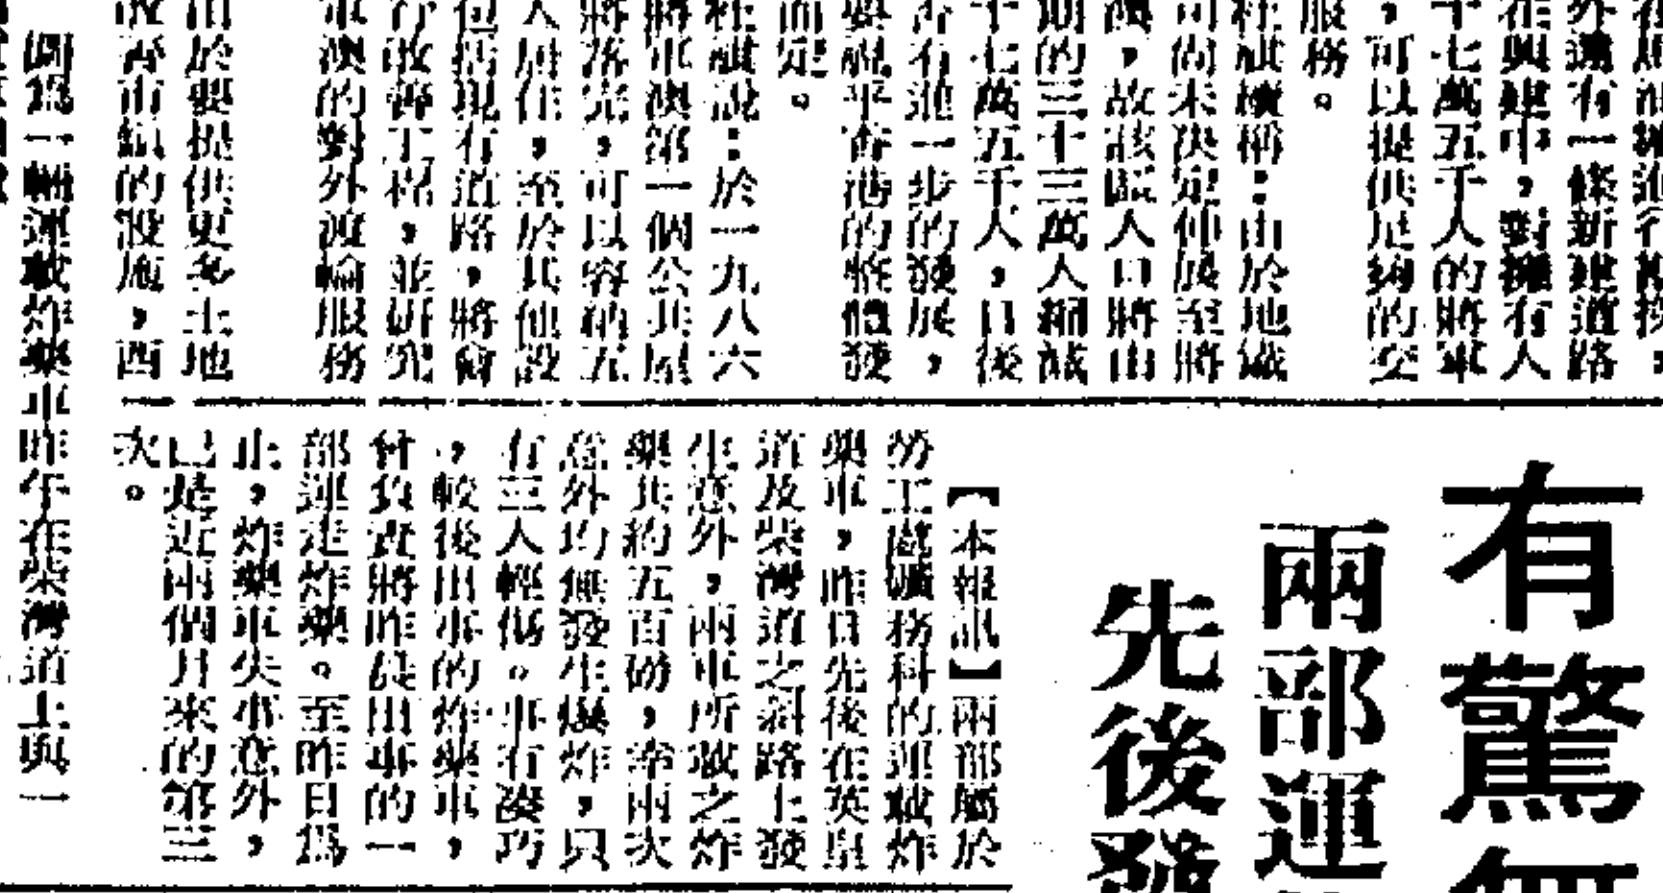 外還有一條新建道路
在興建中，對擁有人
十七萬五千人的將軍
，可以提供足夠的交
服務。
杜祺續稱：由於地鐵
司尚未決定伸展至將
澳，故該區人口將由
期的三十三萬人縮減
十七萬五千人，日後
否有進一步的發展，
要視乎香港的整體發
而定。
杜祺說：於一九八六
將軍澳第一個公共屋
將落完，可以容納五
人居住，至於其他設
包括現有道路，將會
行改善工程，並研究
軍澳的對外渡輪服務
由於要提供更多土地
齊市鎮的設施，西
有驚無
兩部運
先後發
【本報訊】兩部屬於
勞工處礦務科的運載炸
藥車，昨日先後在英皇
道及柴灣道之斜路上發
生意外，兩車所載之炸
藥共約五百磅，幸兩次
意外均無發生爆炸，只
有三人輕傷。事有湊巧
，較後出事的炸藥車，
曾負責將昨晨出事的一
部運走炸藥。至昨日為
止，炸藥車失事意外，
已是近兩個月來的第三
次。
圖為一輛運載炸藥車昨午在柴灣道上與一